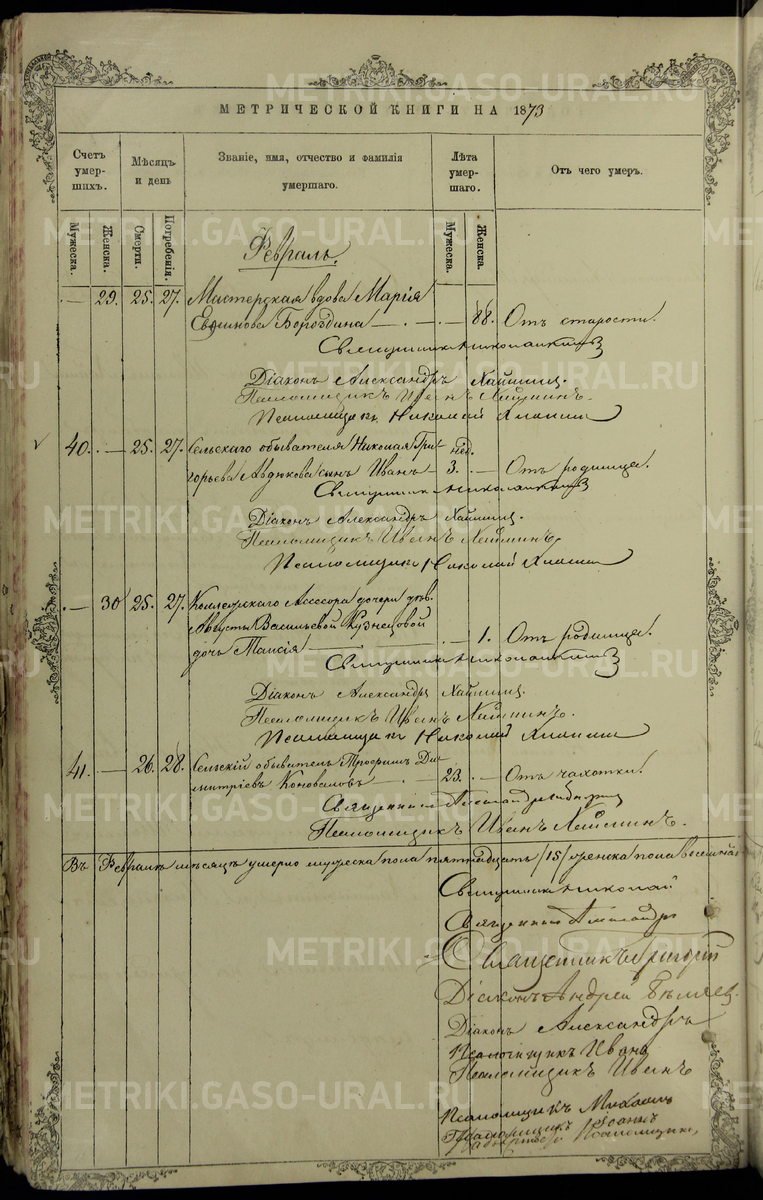 МЕТРИЧЕСКОЙ КНИГИ НА 1873
Счетъ умер-шихъ.
Мѣсяцъ и день
Званіе, имя, отчество и фамилія умершаго.
Лѣта умер-шаго.
Отъ чего умеръ.
Мужеска.
Женска.
Смерти.
Погребенія.
Мужеска.
Женска.
Февраль.
— 29. 25. 27. Мастерская вдова Марія
Евѳимова Бороздина — . — . — 88. Отъ старости.
Священникъ Николай
Діаконъ Александръ
Псаломщикъ Иванъ
Псаломщикъ Николай
40. — 25. 27. Сельскаго обывателя Николая Гри- нед.
горьева Авдюкова сынъ Иванъ — 3. — Отъ родимца.
Священникъ Николай
Діаконъ Александръ
Псаломщикъ Иванъ
Псаломщикъ Николай
— 30 25. 27. Коллежскаго Ассесора дочери дѣв.
Августы Васильевой Кузнецовой
дочь Таисія — . — 1. Отъ родимца.
Священникъ Николай
Діаконъ Александръ
Псаломщикъ Иванъ
Псаломщикъ Николай
41. — 26. 28. Сельскій обыватель Трофимъ Ди-
митріевъ Коноваловъ — 23. — Отъ чахотки.
Священникъ Александръ
Псаломщикъ Иванъ
Въ Февралѣ мѣсяцѣ умерло мужеска пола пятнадцать /15/ женска пола
Священникъ Николай
Священникъ Александръ
Священникъ Григорій
Діаконъ Андрей Бѣляев.
Діаконъ Александръ
Псаломщикъ Иванъ
Псаломщикъ Иванъ
Псаломщикъ Михаилъ
Псаломщикъ Іоаннъ
METRIKI.GASO-URAL.RU